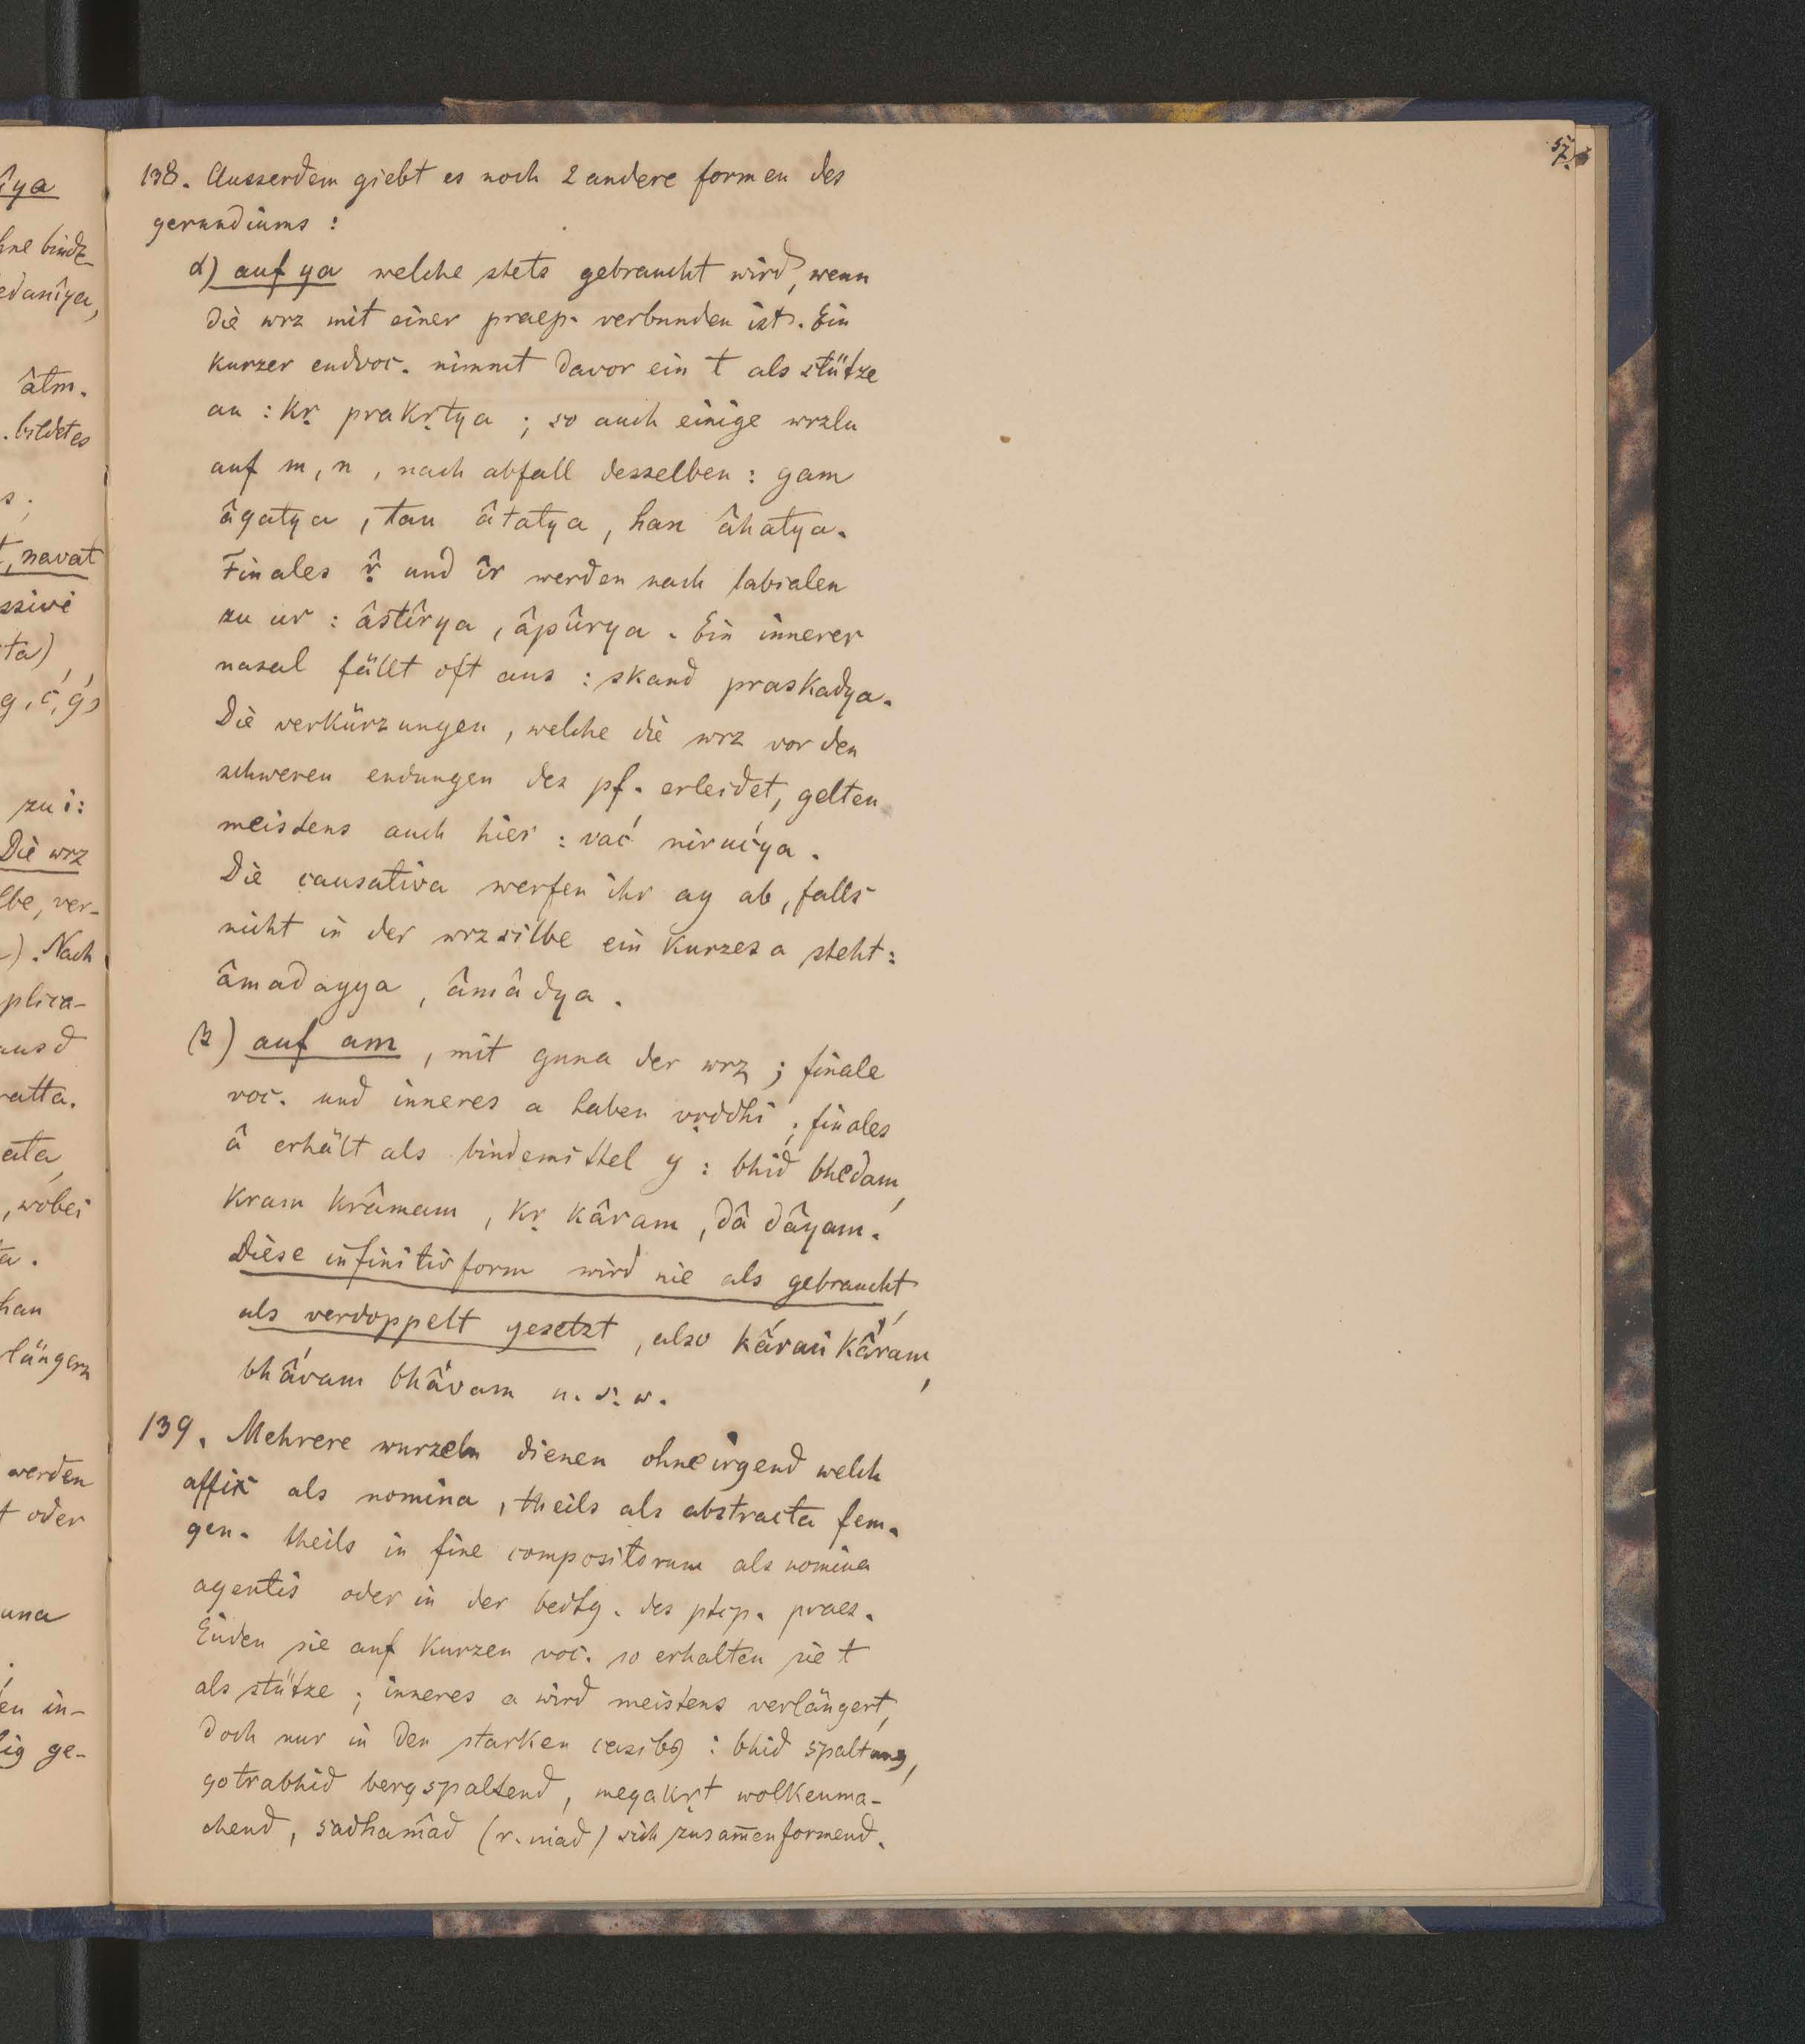 îya
hne bindz-
edanîya,
âtm.
. bildet es
s;
t, navat
ssivi
ta)
g, ć, ǵ,
zu i:
Die wrz
lbe, ver-
). Nach
plica-
ausd
ratta.
ata,
, wobei
ta.
han
längern
werden
t oder
una
en in-
lig ge-
57.
138. Ausserdem giebt es noch 2 andere formen des
gerundiums :
α) auf ya welche stets gebraucht wird, wenn
die wrz mit einer praep. verbunden ist. Ein
kurzer endvoc. nimmt davor ein t als stütze
an : kṛ prakṛtya ; so auch einige wrzln
auf m, n, nach abfall desselben : gam
âgatya, tan âtatya, han âhatya.
Finales ṛ̂ und îr werden nach labialen
zu ur : âstîrya, âpûrya. Ein innerer
nasal fällt oft aus : skand praskadya.
Die verkürzungen, welche die wrz vor den
schweren endungen des pf. erleidet, gelten
meistens auch hier : vać nirućya.
Die causativa werfen ihr ay ab, falls
nicht in der wrzsilbe ein kurzes a steht :
âmadayya, âmâdya.
β) auf am, mit guna der wrz ; finale
voc. und inneres a haben vṛddhi ; finales
â erhält als bindemittel y : bhid bhedam,
kram krâmam, kṛ kâram, dâ dâyam.
Diese infinitivform wird nie als gebraucht
als verdoppelt gesetzt, also kấram kấram,
bhấvam bhâvam u. s. w.
139. Mehrere wurzeln dienen ohne irgend welch
affix als nomina, theils als abstracta fem.
gen. theils in fine compositorum als nomina
agentis oder in der bedtg. des ptcp. praes.
Enden sie auf kurzen voc. so erhalten sie t
als stütze ; inneres a wird meistens verlängert,
doch nur in den starken casibꝫ : bhid spaltung,
gotrabhid bergspaltend, megakṛt wolkenma-
chend, sadhamâd (r. mad) sich zusam̅enformend.